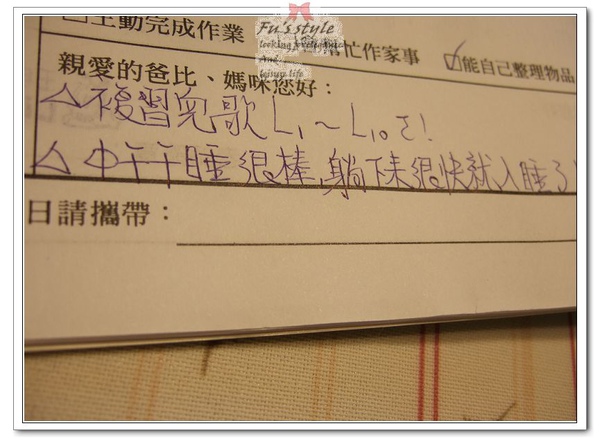 Fu's style
looking for elegance
And
enjoy life
□主動完成作業 幫忙作家事 ☑能自己整理物品
親愛的爸比、媽咪您好：
△複習兒歌L1～L10ㄛ!
△中午午睡很棒,躺下來很快就入睡了
日請攜帶：